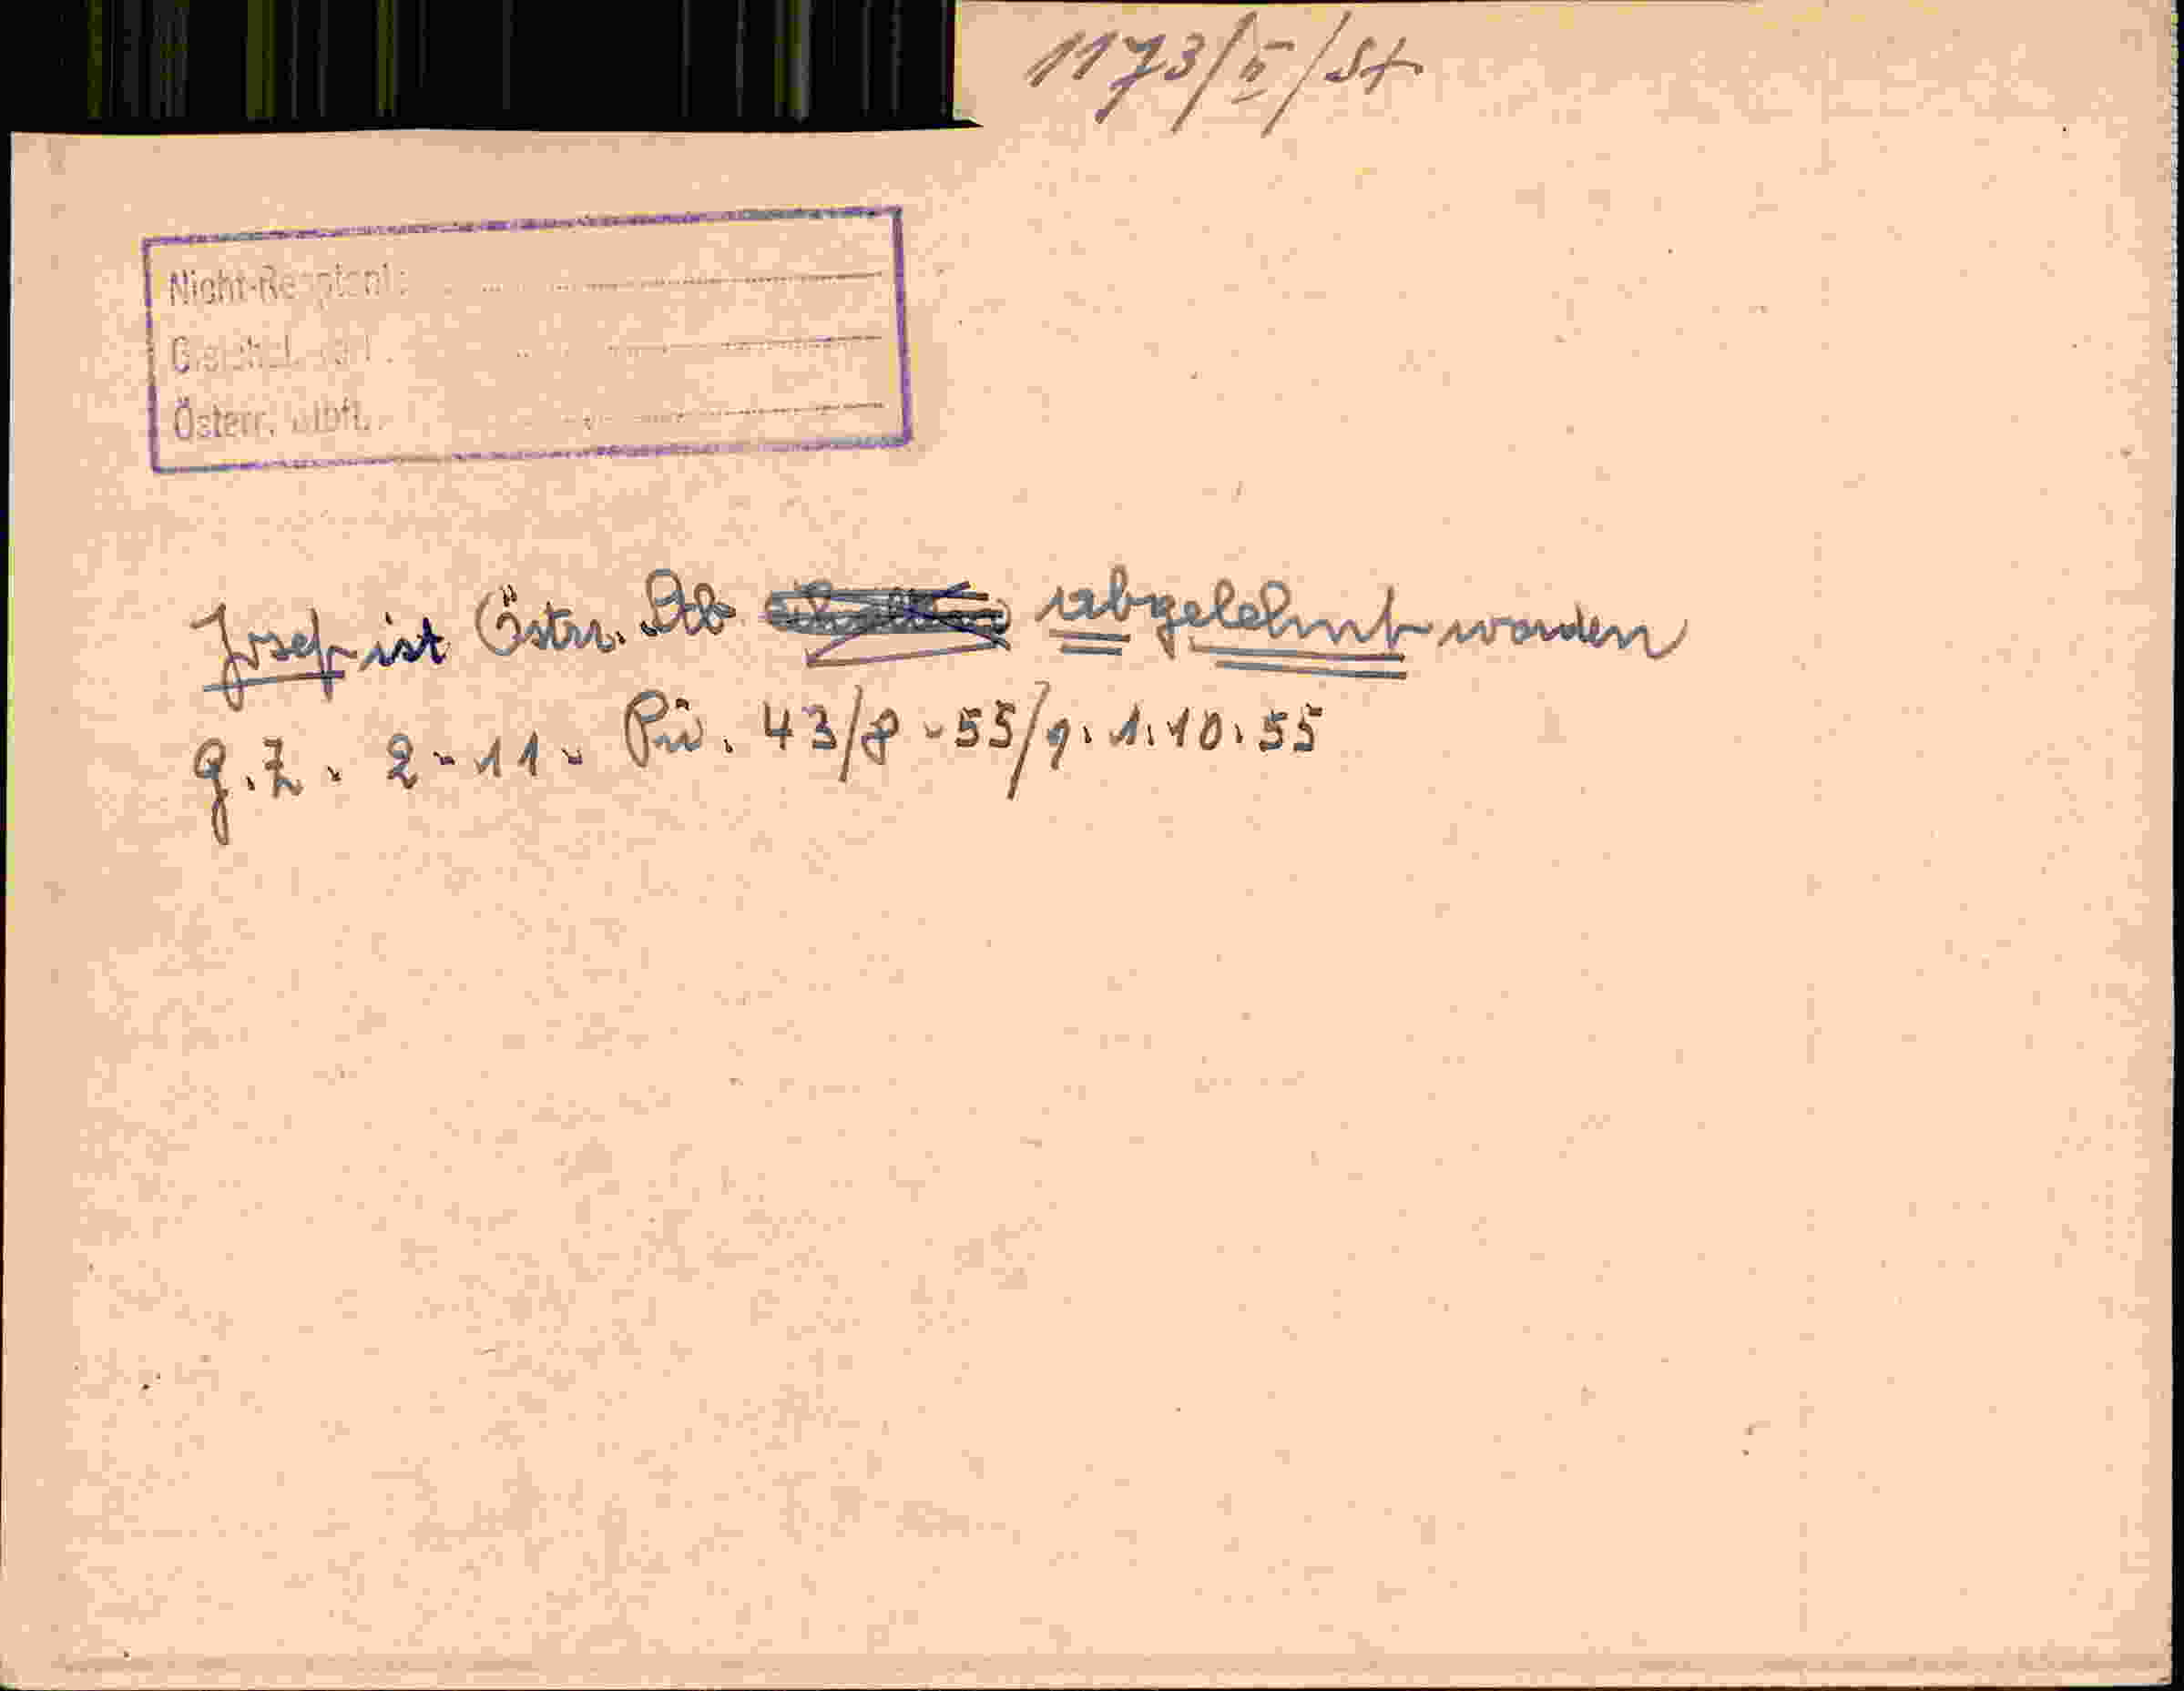 1173/II/St
Nicht-Reoptant:
Österr.
Josef ist Östrr. Stb abgelehnt worden
g.Z. 2-11- Pü. 43/8-55/9. 1.10.55